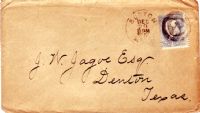 DEC
J. W. Jagoe Esq
Denton
Texas.